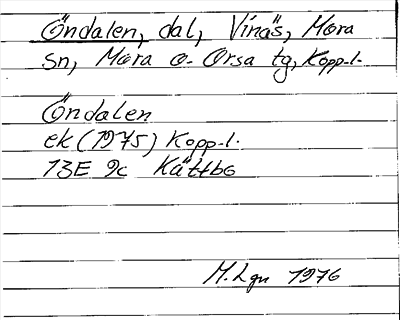 Öndalen, dal, Vinäs, Mora
sn, Mora o. Orsa tg, Kopp.l.
Öndalen
ek (1975) Kopp.l.
13E 9c Kättbo
M.Lgn 1976